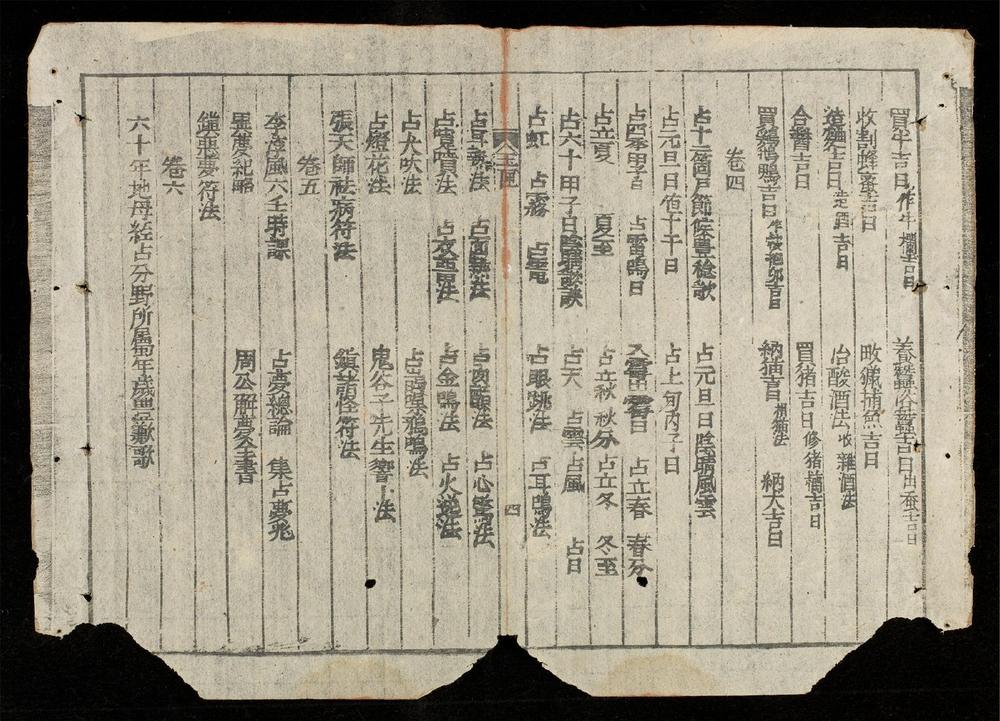 買牛吉日 作牛欄吉日 養蠶浴蠶吉日 出蚕吉日
收割蜂蜜吉日 畋獵捕魚吉日
造麯吉日 造酒吉日 治酸酒法 收雜酒法
合醬吉日 買猪吉日 修猪稠吉日
買鷄鵝鴨吉日 納猫吉日 相猫法 納犬吉日
卷四
占十二箇月節候豊稔歌 占元旦日陰晴風雲
占元旦日值十干日 占上旬內子日
占四季甲子日 占雷鳴日 占立春 春分
占立夏 夏至 占立秋 秋分 占立冬 冬至
占六十甲子日陰晴歌訣 占天 占雲 占風 占日
占虹 占霧 占電 占眼跳法 占耳鳴法
四
占耳熱法 占面熱法 占肉顫法 占心驚法
占嚏噴法 占衣留法 占金鳴法 占火逸法
占犬吠法 占鵲噪鴉鳴法
占燈花法 鬼谷子先生響卜法
張天師祛病符法 鎮諸怪符法
卷五
李淳風六壬時課 占夢總論 集占夢兆
異度紀略 周公解夢全書
鎮惡夢符法
卷六
六十年地母經占分野所屬年歲豐歉歌